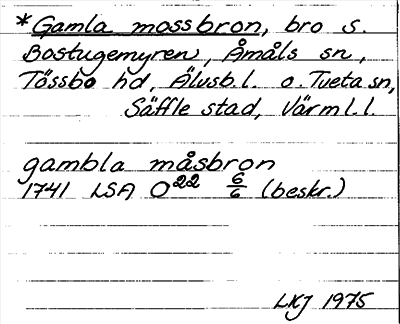 *Gamla mossbron, bro s.
Bostugemyren, Åmåls sn,
Tössbo hd, Älvsb. l. o. Tveta sn,
Säffle stad, Värml. l.
gambla måsbron
1741 LSA O22 6/6 (beskr.)
LKJ 1975